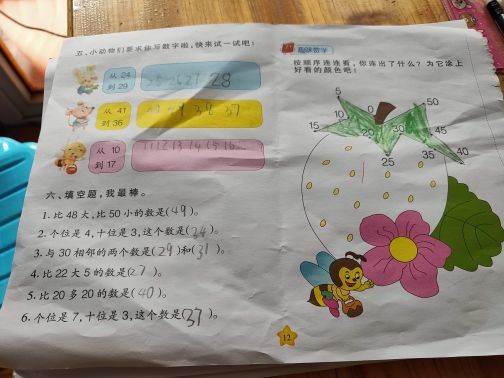 五、小动物们要求你写数字啦,快来试一试吧!
从 24
到 29
25 26 27 28
从 41
到 36
39 38 37
从 10
到 17
11 12 13 14 15 16
六、填空题,我最棒。
1. 比 48 大,比 50 小的数是(49)。
2. 个位是 4,十位是 3,这个数是(34)。
3. 与 30 相邻的两个数是(29)和(31)。
4. 比 22 大 5 的数是(27)。
5. 比 20 多 20 的数是(40)。
6. 个位是 7,十位是 3,这个数是(37)。
趣味数学
按顺序连连看,你连出了什么?为它涂上
好看的颜色吧!
5
0
50
10
45
15
20
30
35
40
25
12